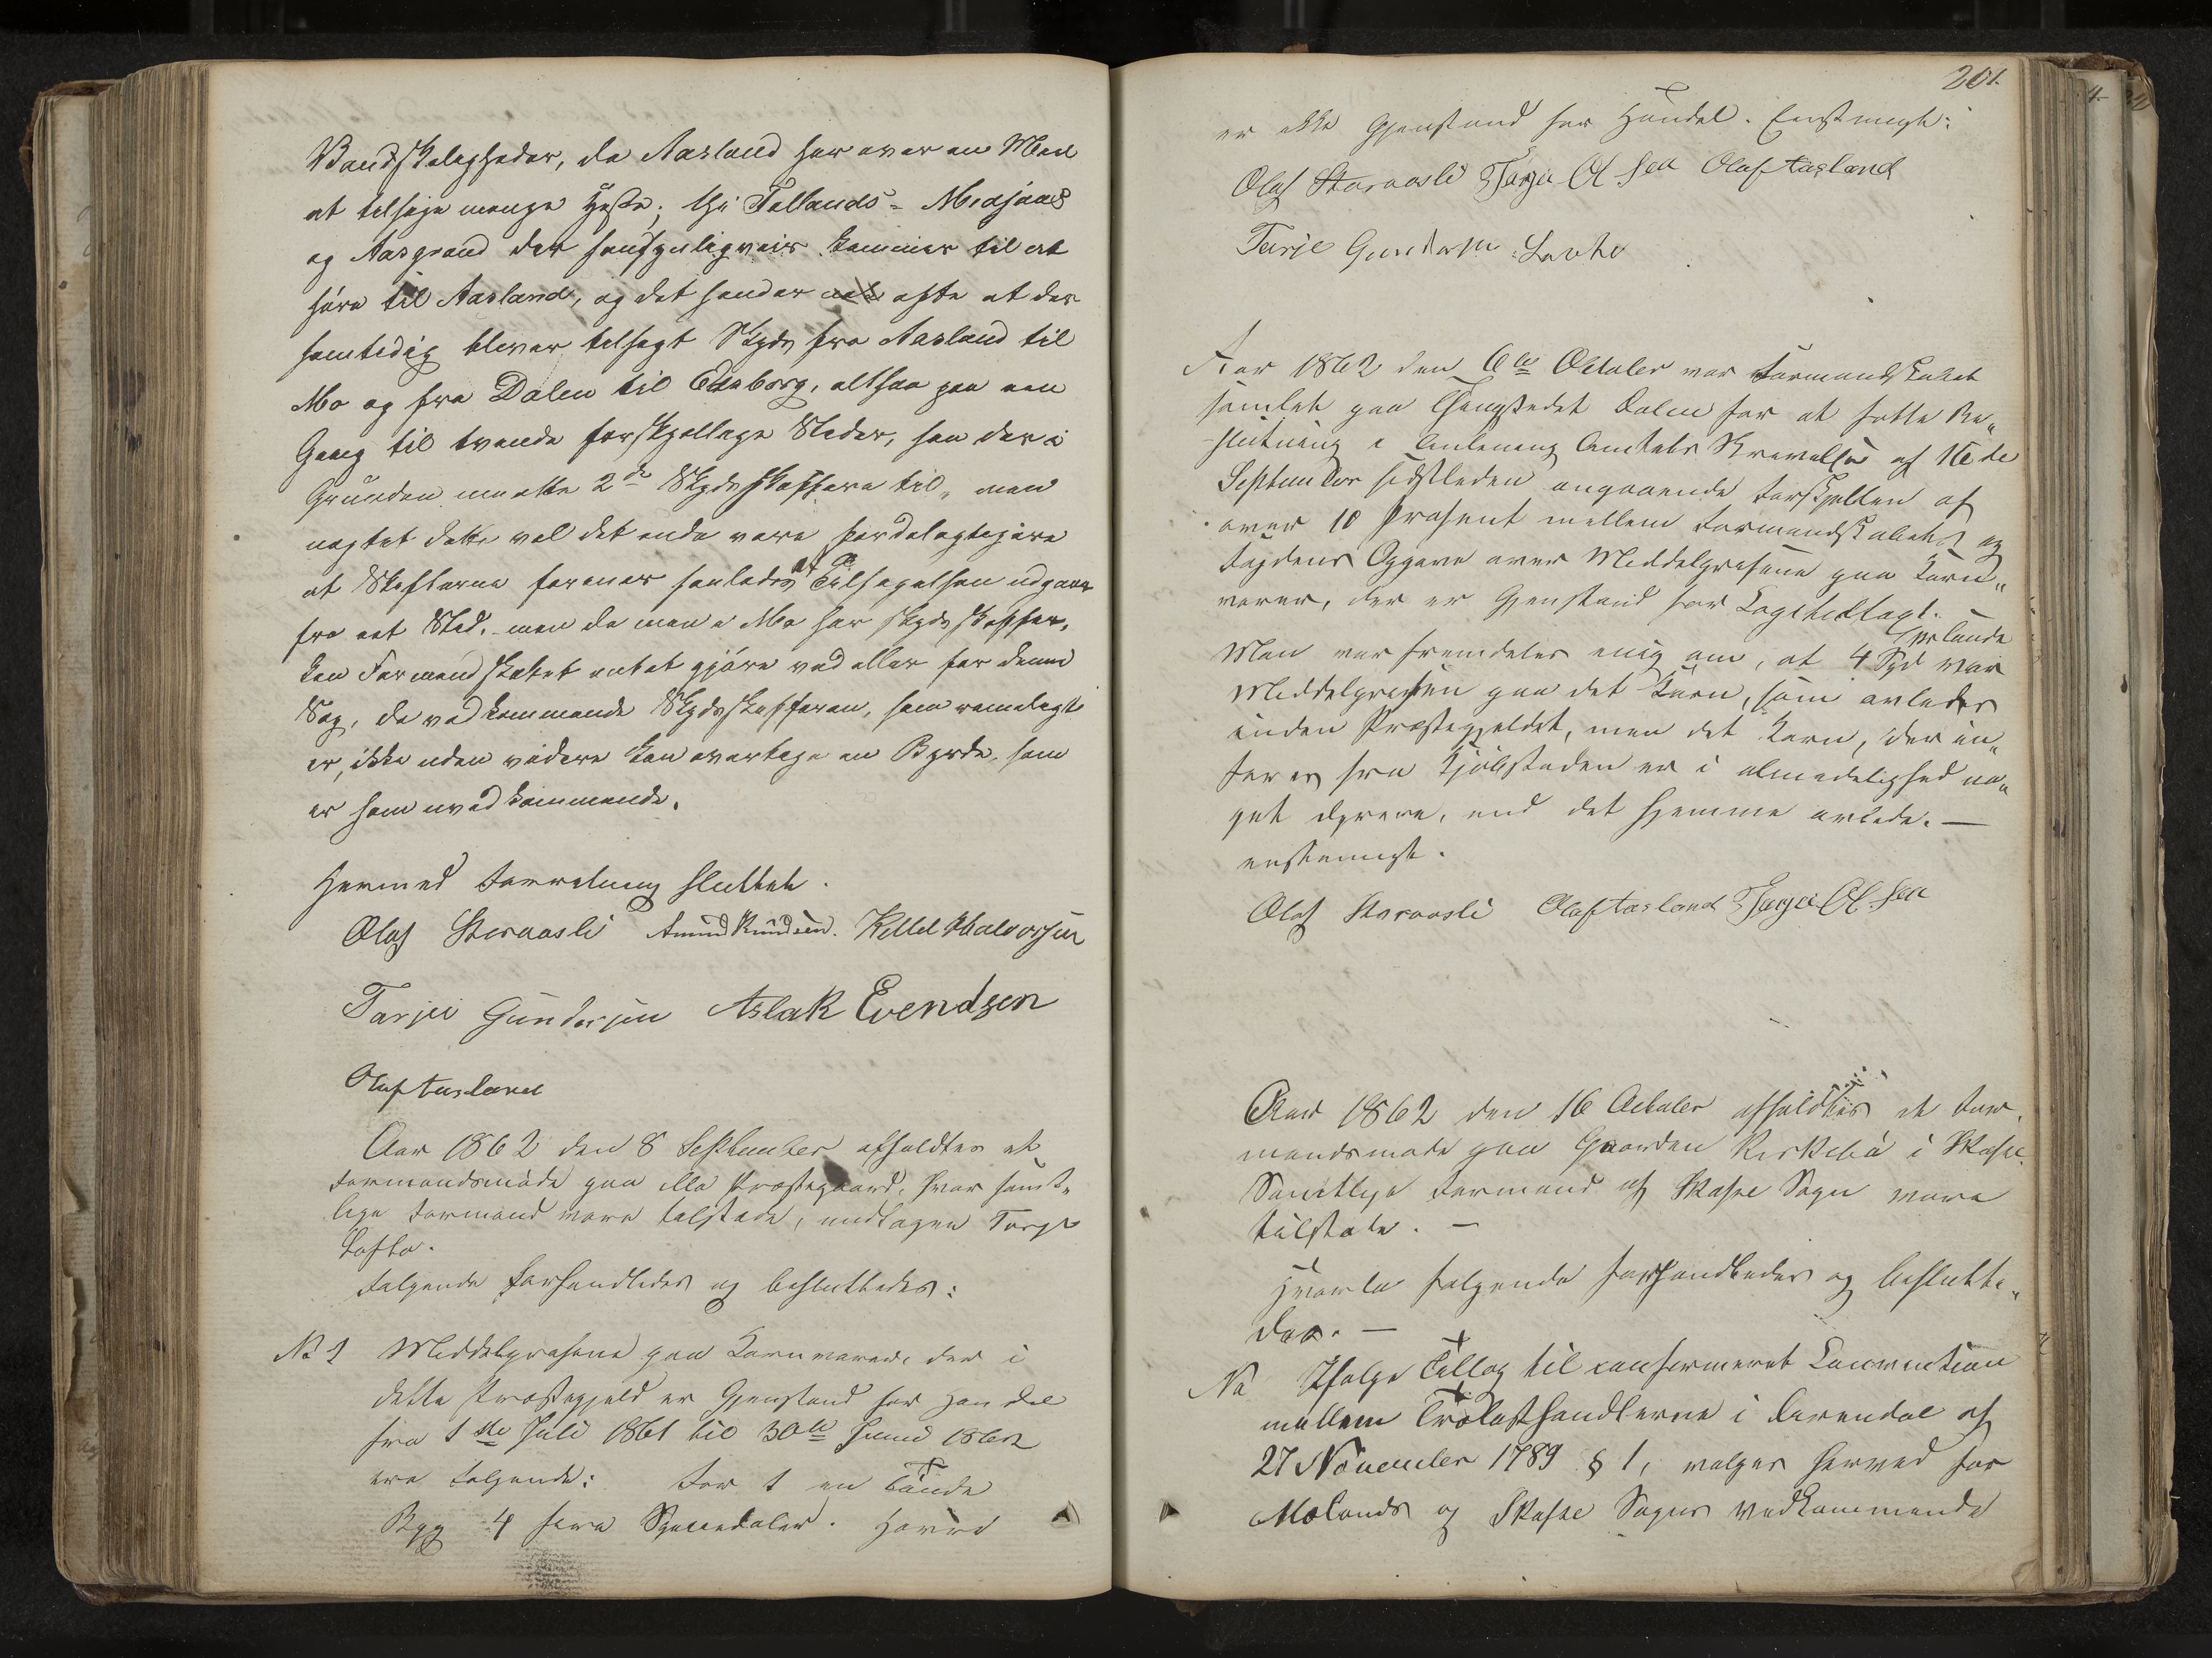 Vandskeligheder, da Aasland har over en Miil
at tilsige mange Heste; thi Tollands-Midjaas
og Aasgrand der sandsynligviis kommer til at
høre til Aasland, og det hender ofte at der
samtidig bliver tilsagt Skyds fra Aasland til
Mo og fra Dalen til Eidsborg, altsaa paa een
Gang til tvende forskjellige Steder, saa der i
Grunden maatte 2de Skydsskaffere til, men
uagtet dette vel det enda være fordelagtigere
at Skafferne forenes saaledes at Tilsigelsen udgaar
fra eet Sted. men da man i Mo har Skydsskaffer,
kan Formandskabet intet gjøre ved eller for denne
Sag, da vedkommende Skydsskafferen, som
er, ikke uden videre kan overtage en Byrde, som
er ham uvedkommende.
Hermed Forretning sluttet.
Olaf Storaasli Amund Knudsen. Kittel Halvorsen
Tarjei Gundersen Aslak Evendsen
Olaf Aasland
Aar 1862 den 8 September afholdtes et
Formandsmøde paa illa Præstegaard, hvor samt-
lige Formænd vare tilstede, undtagen Targe
Lofto.
Følgende forhandledes og besluttedes:
No 1 Middelpriserne paa Kornvarer, der i
dette Præstegjeld er Gjenstand for Handel
fra 1ste Juli 1861 til 30te Juni 1862
ere følgende: For 1 en Tønde
Byg 4 fire Speciedaler. Havre
201.
er ikke Gjenstand for Handel. Enstemigt:
Olaf Storaasli Tarje Olsen Olaf Aasland
Tarje Gundersen Lofto
Aar 1862 den 6te Octaber var Formandskabet
samlet paa Thingstedet Dalen for at fatte Be-
slutning i Anledning Amtets Skrivelse af 16de
September sidstleden angaaende Forskjellen af
over 10 Prosent mellem Formandskabets og
Fogdens Opgave over Middelpriserne paa Korn-
varer, der er Gjenstand for Kapiteltaxt. -
Man var fremdeles enig om, at 4 Spd var
Middelprisen paa det Korn, som avledes
inden Præstegjeldet, men det Korn, der ind-
føres fra Kjøbstaden er i almindelighed no-
get dyrere, end det hjemme avlede. —
enstemigt.
Olaf Storaasli Olaf Aasland Tarje Olsen
Aar 1862 den 16 Octaber afholdtes et For-
mandsmøde paa Gaarden Kirkebø i Skafse.
Samtlige Formænd af Skafse Sogn vare
tilstede. —
Hvorda følgende forhandledes og beslutte-
des. —
No Ifølge Tillæg til confirmeret Convention
mellem Trælasthandlerne i Arendal af
27 November 1789 § 1, vælges herved for
Molands og Skafse Sogns vedkommende